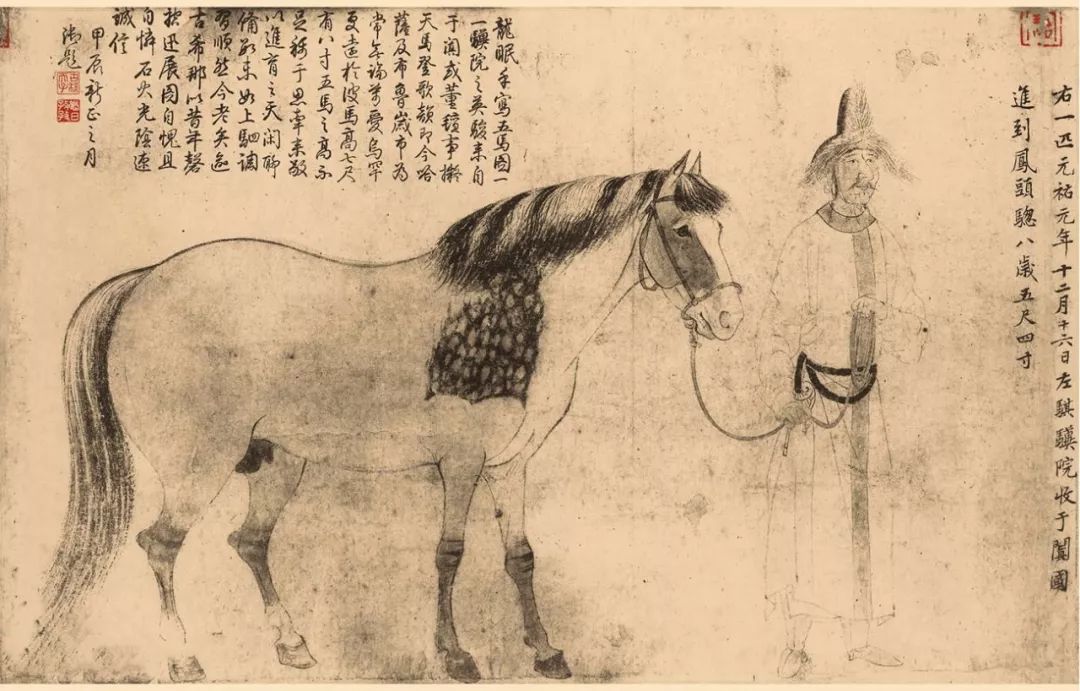 右一匹元祐元年十二月十六日左騏驥院收于闐國
進到鳳頭驄八歲五尺四寸
龍眠手寫五馬圖一
一驥院之英駿來自
于闐或董氊事擬
天馬登歌頡即今哈
薩及布魯歲市為
常無論蒙愛烏罕
更遠於彼馬高七尺
有八寸五馬之高不
足稱于思牽來敬
以進育之天閑聊
備來如上駟調
習順然今老矣逾
古希那似昔年磬
控迅展圖自愧且
自憐石火光陰速
誠信
甲辰新正之月
御題